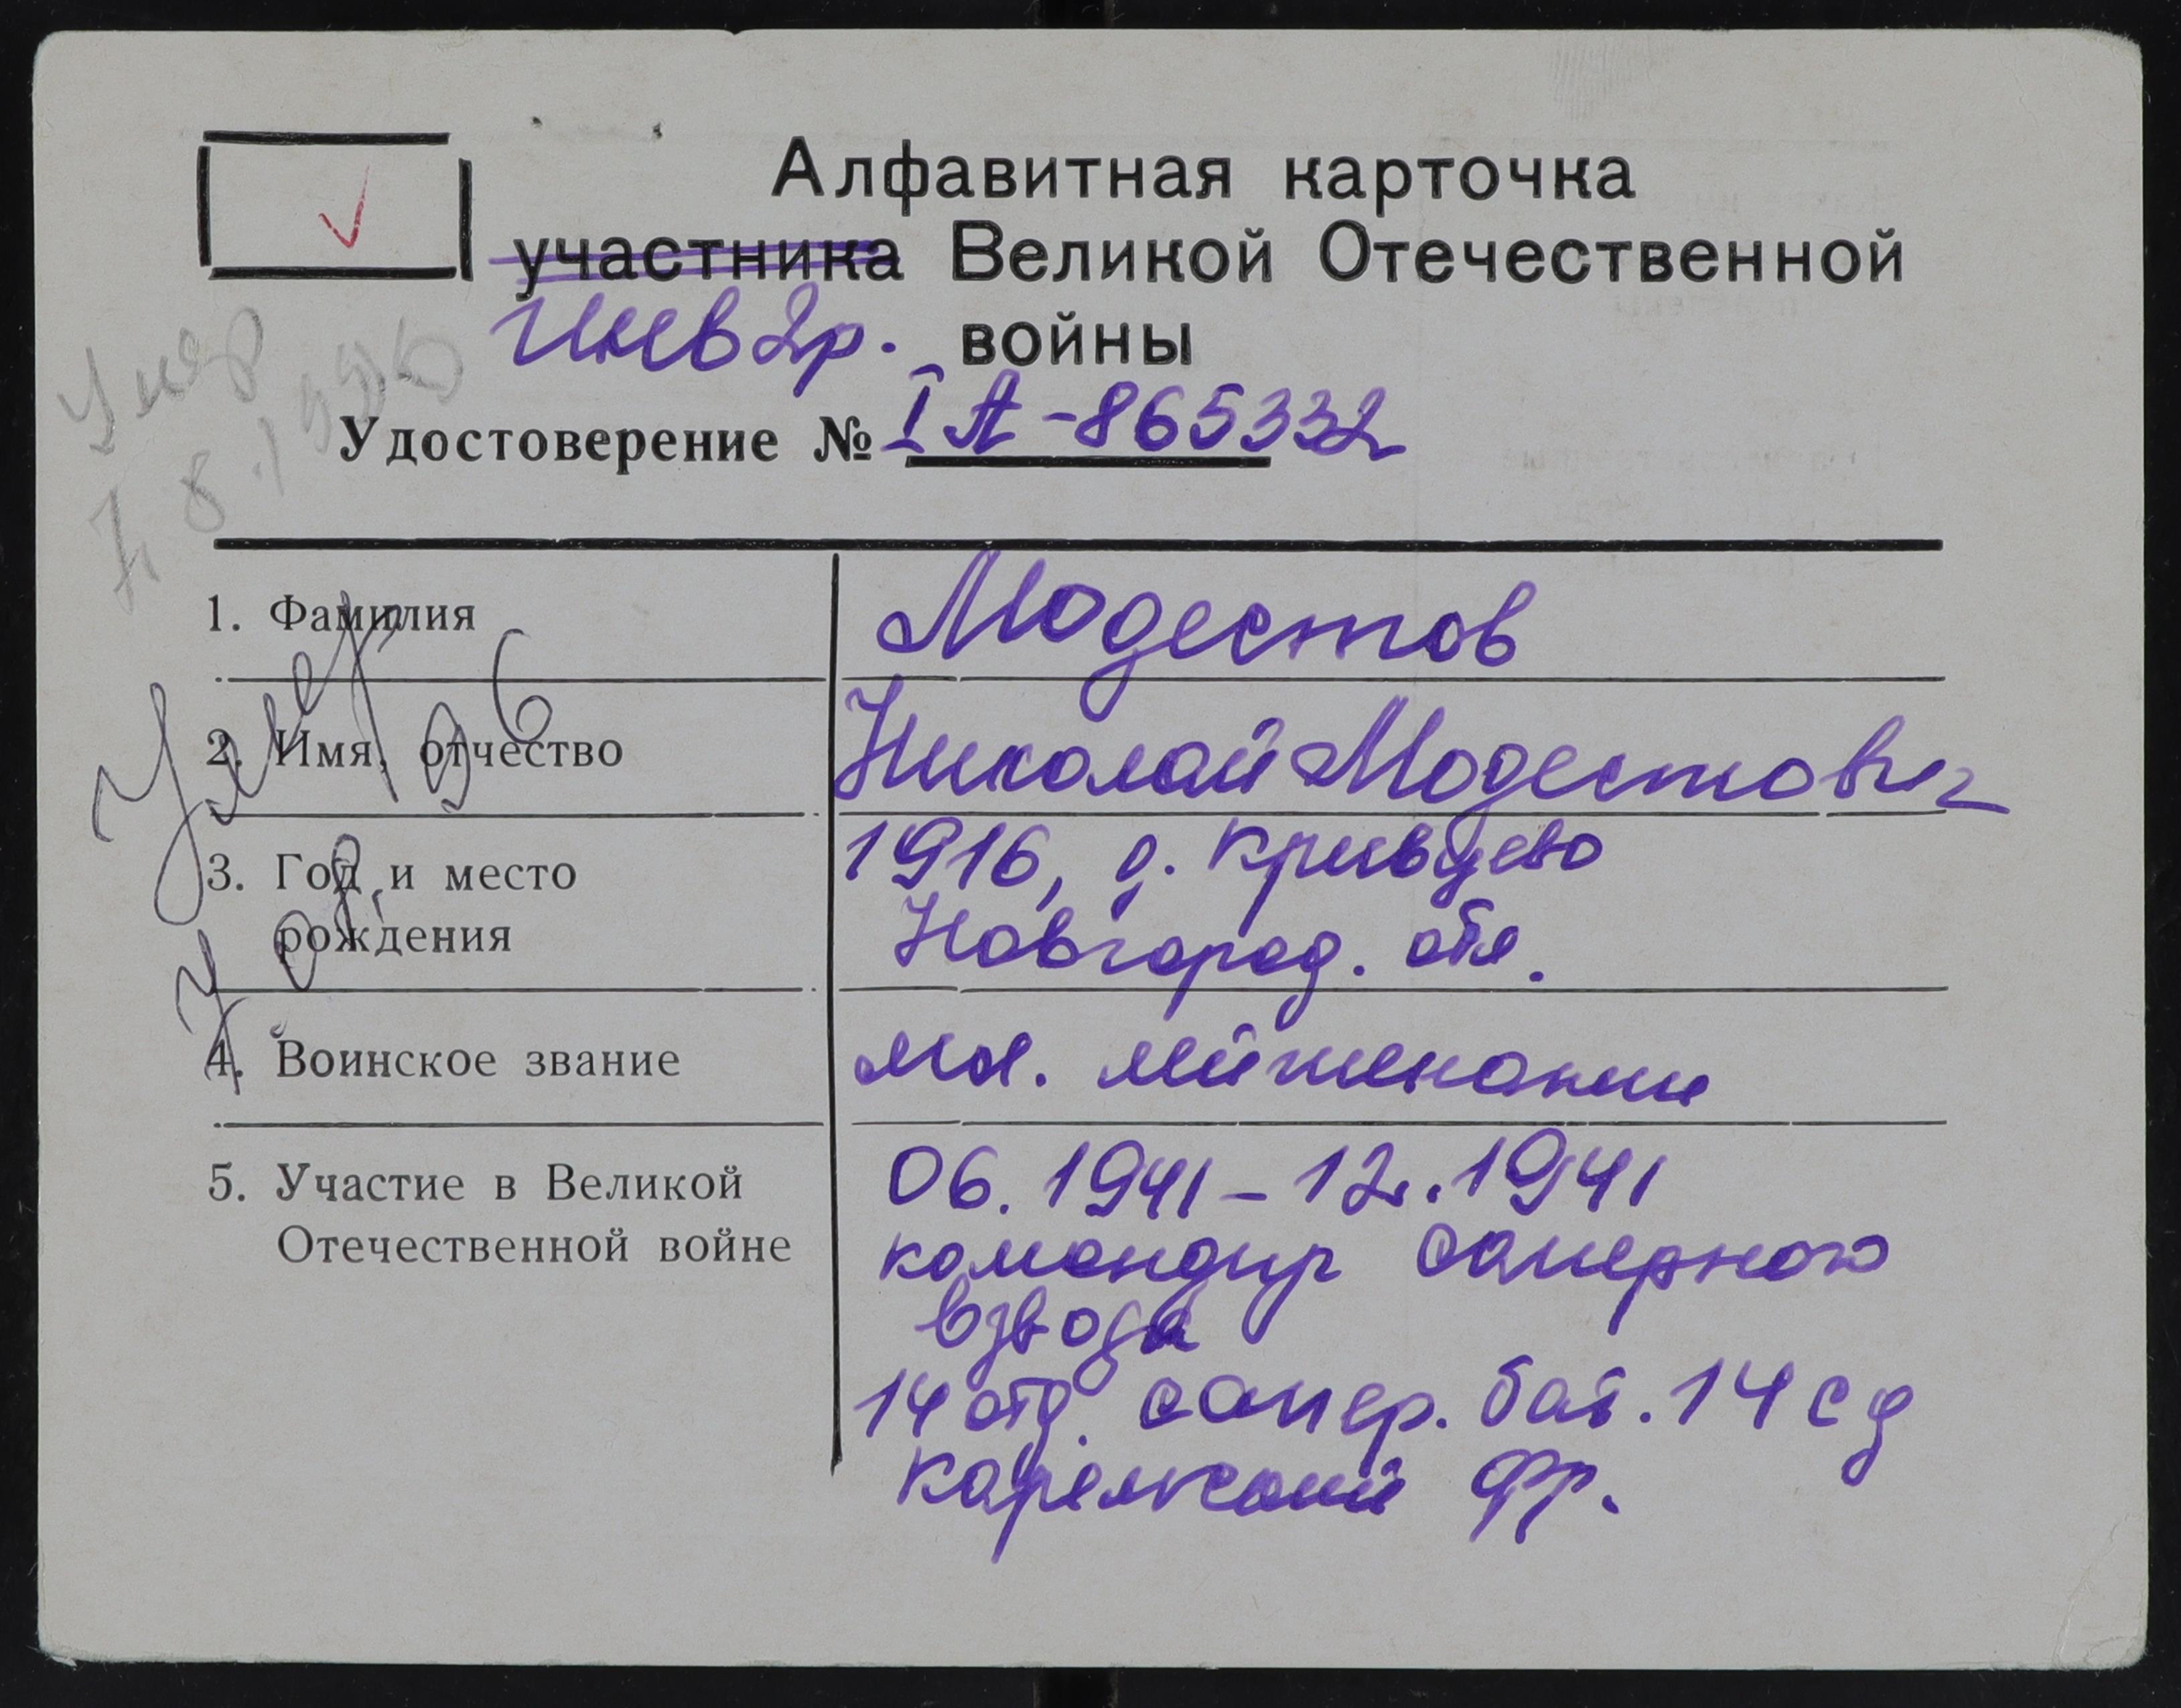 Алфавитная карточка
участника Великой Отечественной
Инв 2гр. войны
Удостоверение № IА-865332
Умер
7.8.1996
1. Фамилия Модестов
Умер
96
2. Имя, отчество Николай Модестович
3. Год и место рождения 1916, д. Кривцево
Новгород. обл.
7 08,
4. Воинское звание мл. лейтенант
5. Участие в Великой Отечественной войне 06.1941-12.1941
командир саперного
взвода
14 отд. сапер. бат. 14 сд
Карельский фр.